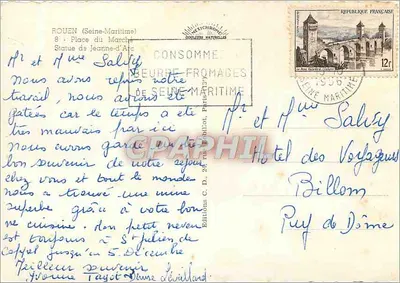 ROUEN (Seine-Maritime)
8 - Place du Marché
Statue de Jeanne d'Arc
CONSOMMEZ
BEURRE-FROMAGES
DE SEINE MARITIME
RÉPUBLIQUE FRANÇAISE
12F
1956
SEINE MARITIME
Mr et Mme Salvy
nous avons repris notre
travail nous avons été
gâtées car le temps a été
très mauvais par ici
nous avons gardé un
bon souvenir de notre séjour
chez vous et tout le monde
nous a trouvé une mine
superbe grâce à votre bonne
cuisine. Mon petit neveu
est toujours à St Julien de
Coppel jusqu'au 5 Décembre
Meilleur souvenir
Yvonne
Mr et Mme Salvy
Hotel des Voyageurs
Billom
Puy de Dôme
Editions C. D.